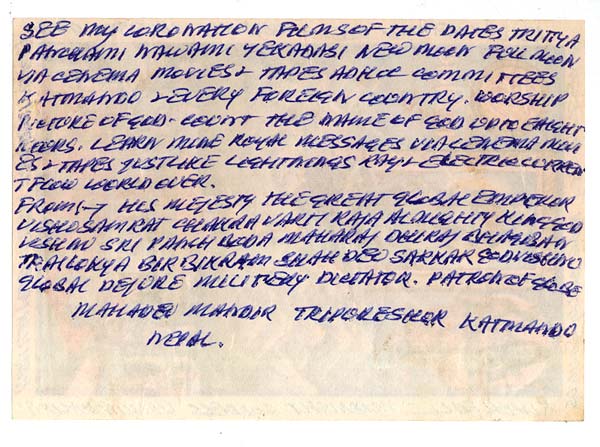 SEE MY CORONATION FILMS OF THE DATES TRITYA
PANCHAMI NAWAMI YEKADASI NEW MOON FULL MOON
VIA CENEMA MOVIES & TAPES ADHOC COMMITTEES
KATMANDO & EVERY FOREIGN COUNTRY. WORSHIP
PICTURE OF GOD. COUNT THE NAME OF GOD UPTO EAIGHT
HOURS. LEARN MINE ROYAL MESSAGES VIA CENEMA MOVI
ES & TAPES JUST LIKE LIGHTNINGS RAY & ELECTRIC CURREN
T FLOW WORLD OVER.
FROM:- HIS MEJESTY THE GREAT GLOBAL EMPEROR
VISHOSAMRAT CHAKRAVARTI RAJA ALMIGHTY KING GOD
VISHNU SRI PANCH BODA MAHARAJ DHIRAJ
TRAILOKYA BIR BIKRAM SHAH DEO SARKAR GOD VISHNU
GLOBAL DEJURE MILITERY DICTATOR. PATRON OF GLOBE
MAHADEO MANDIR TRIPORESHOR KATMANDO
NEPAL.